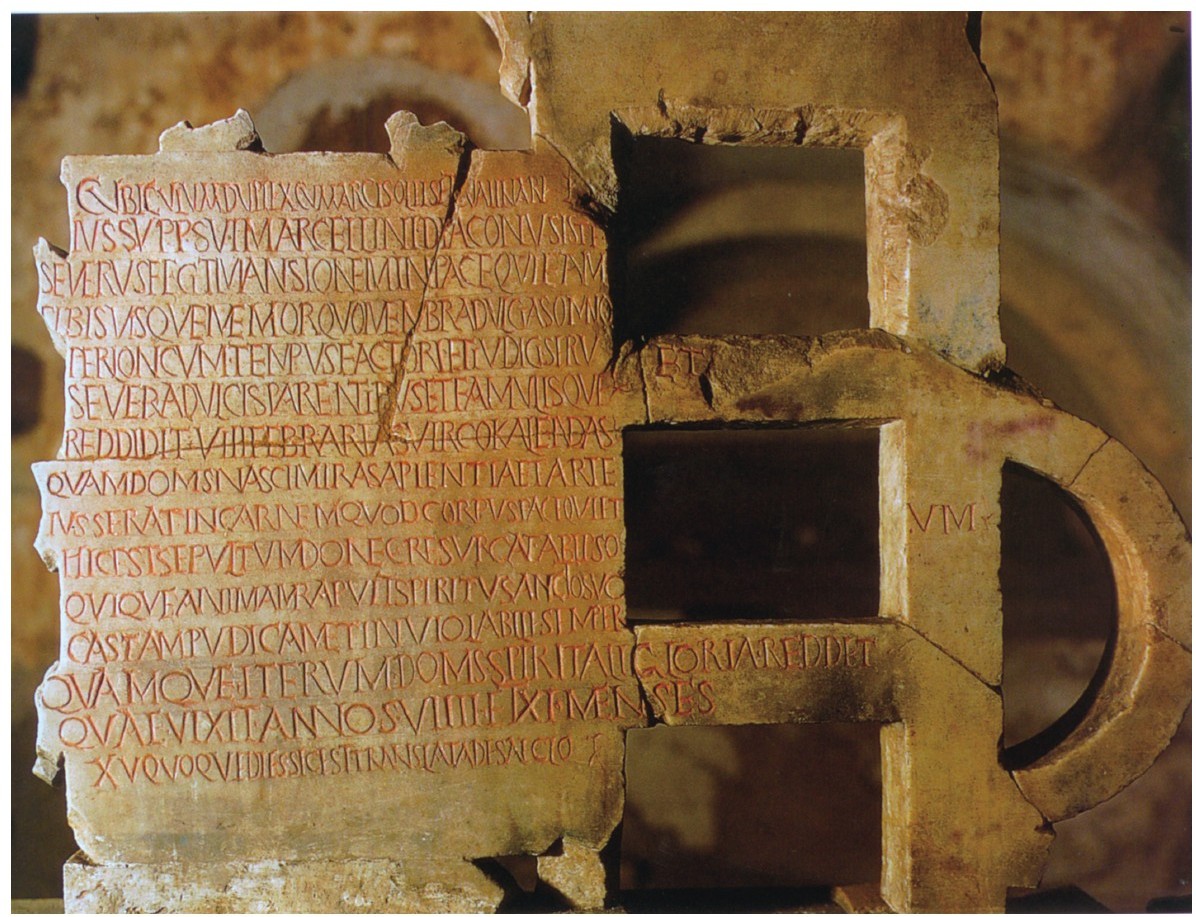 CVBICVLVM DVPLEX CVM ARCISOLIIS ET LVMINAR
IVSSV PP SVI MARCELLINI DIACONVS ISTE
SEVERVS FECIT MANSIONEM IN PACE QVIETAM
SIBI SVISQVE MEMOR QVO MEMBRA DVLCIA SOMNO
PER LONGVM TEMPVS FACTORI ET IVDICI SERV ET
SEVERA DVLCIS PARENTIBVS ET FAMVLISQVE
REDDIDIT VIIII FEBRARIAS VIRGO KALENDAS
QVAM DOMS NASCI MIRA SAPIENTIA ET ARTE
IVSSERAT IN CARNEM QVOD CORPVS PACE QVIET VM
HIC EST SEPVLTVM DONEC RESVRGAT AB IPSO
QVIQVE ANIMAM RAPVIT SPIRITV SANCTO SVO
CASTAM PVDICAM ET INVIOLABILE SEMPER
QVAMQVE ITERVM DOMS SPIRITALI GLORIA REDDET
QVAE VIXIT ANNOS VIIII ET XI MENSES
XV QVOQVE DIES SIC EST TRANSLATA DE SAECLO